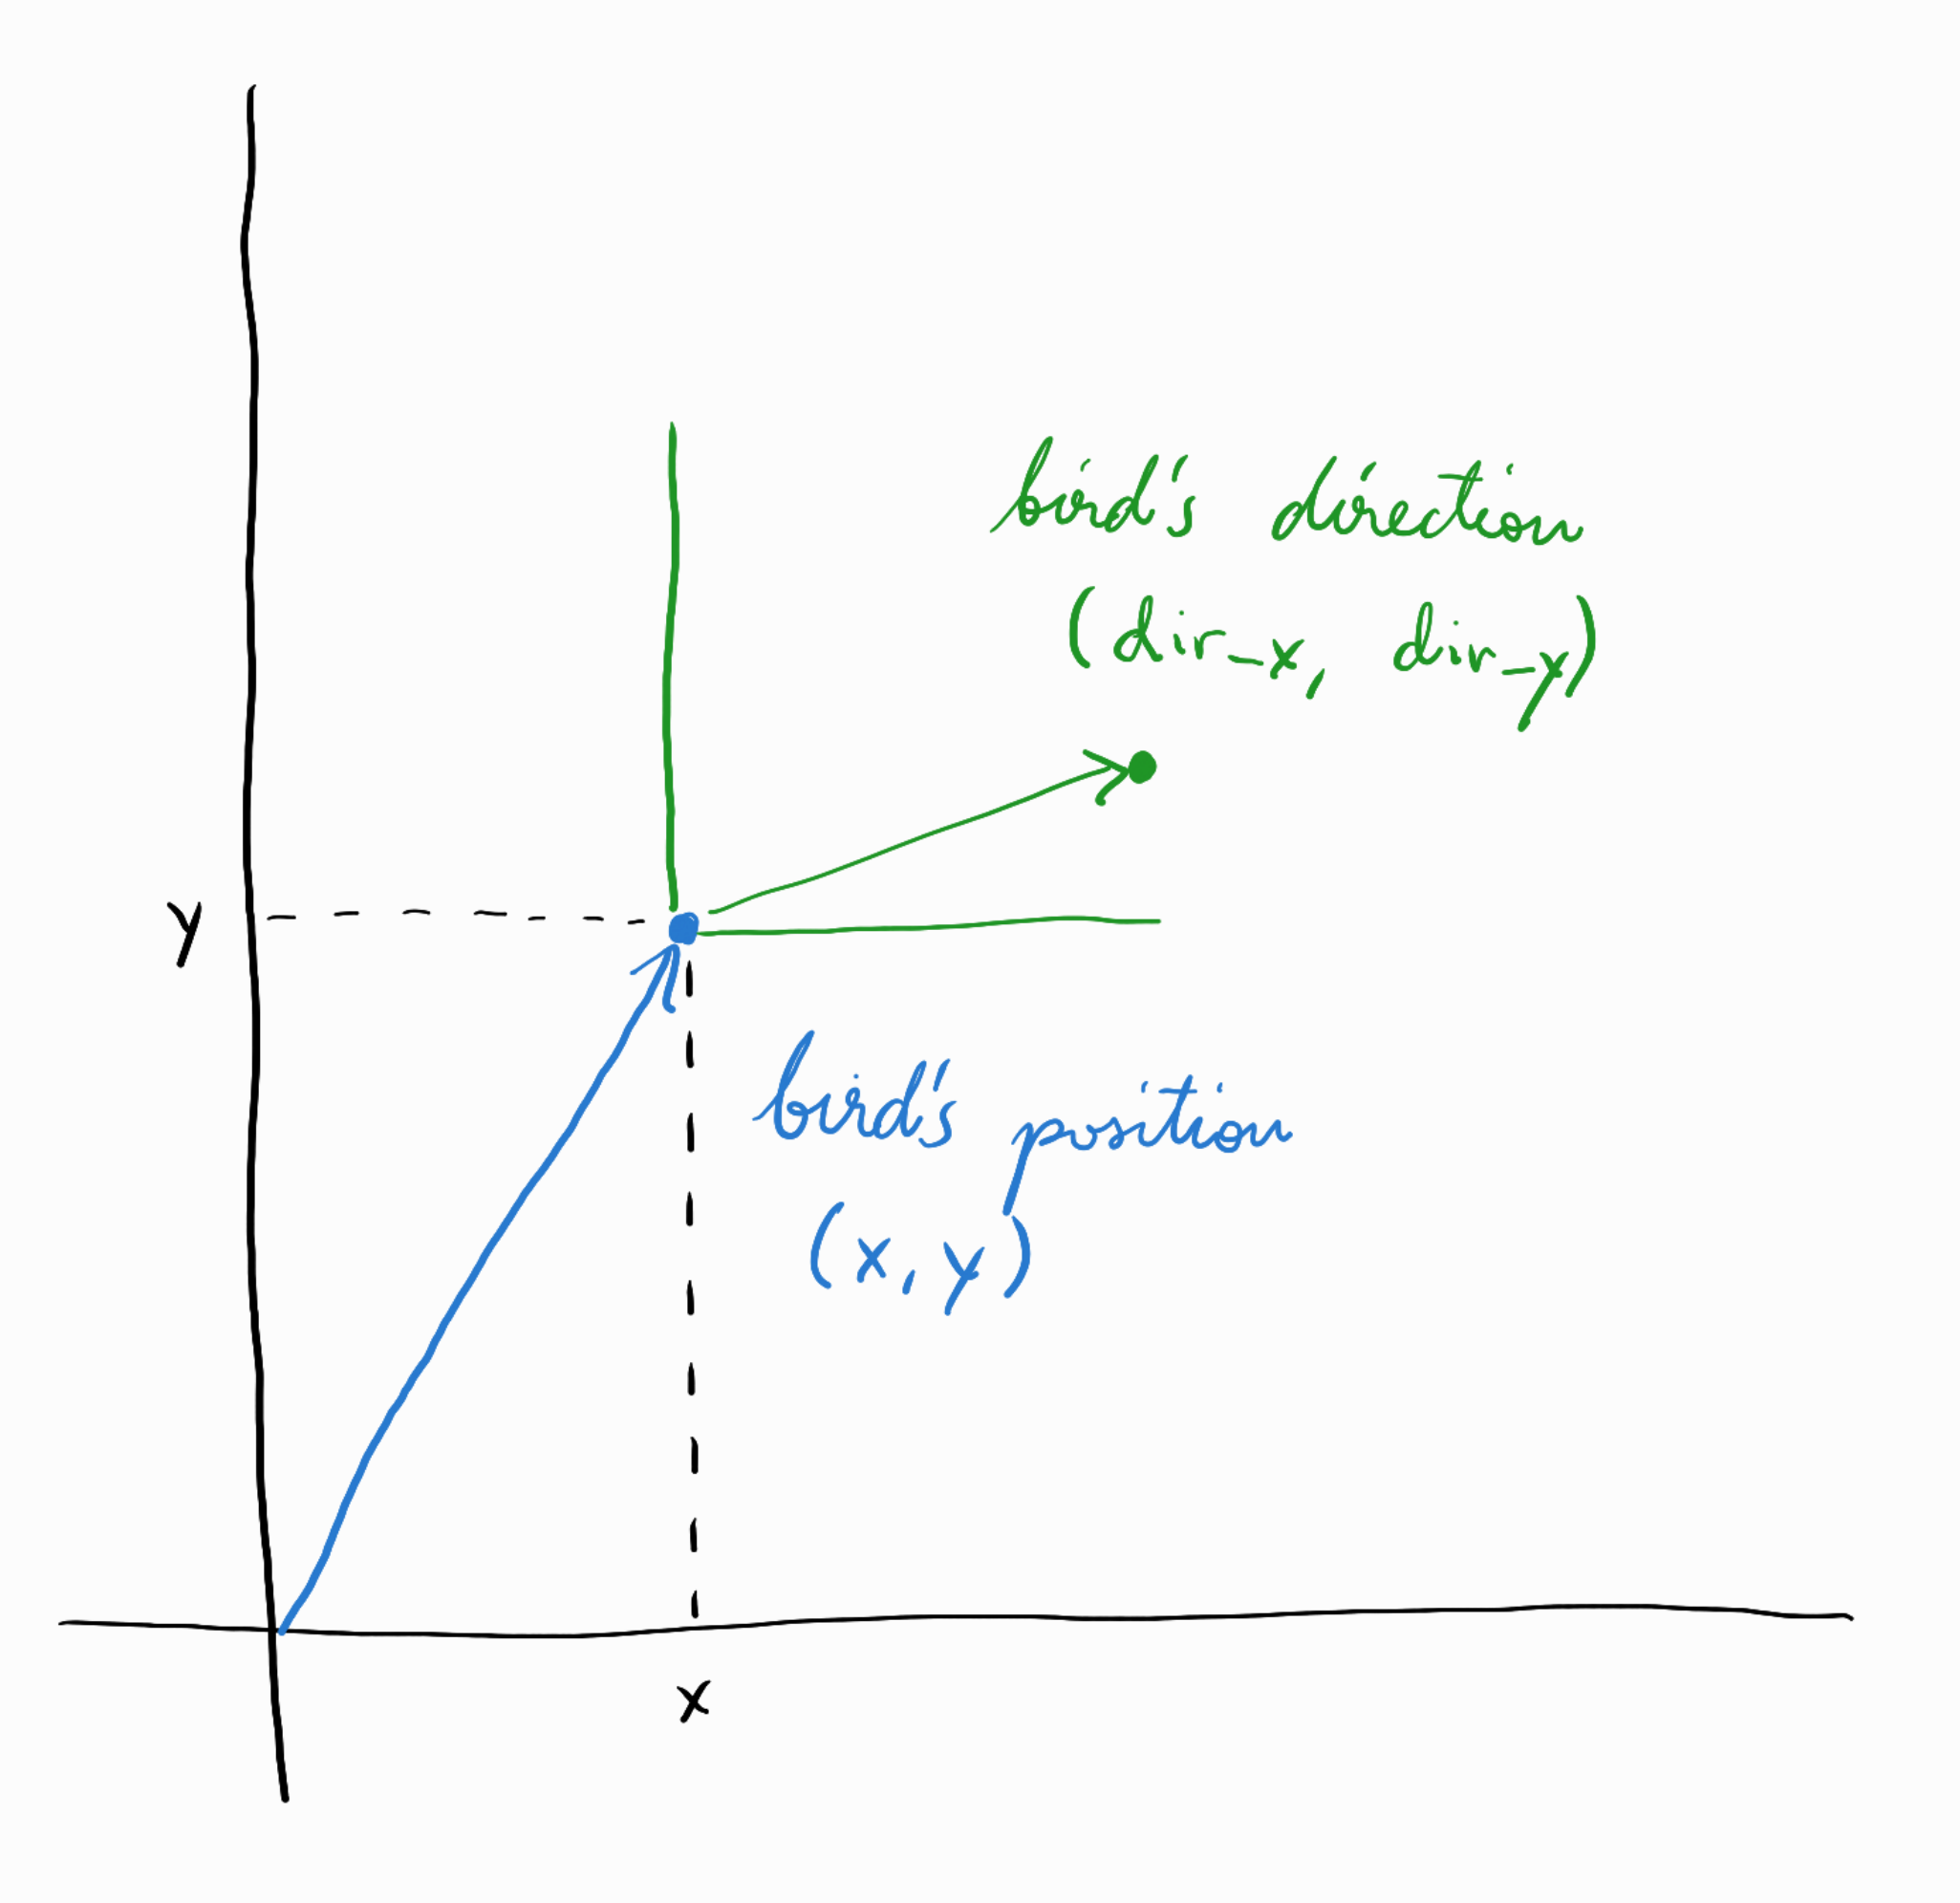 bird's direction
(dir_x, dir_y)
y
bird's position
(x, y)
x